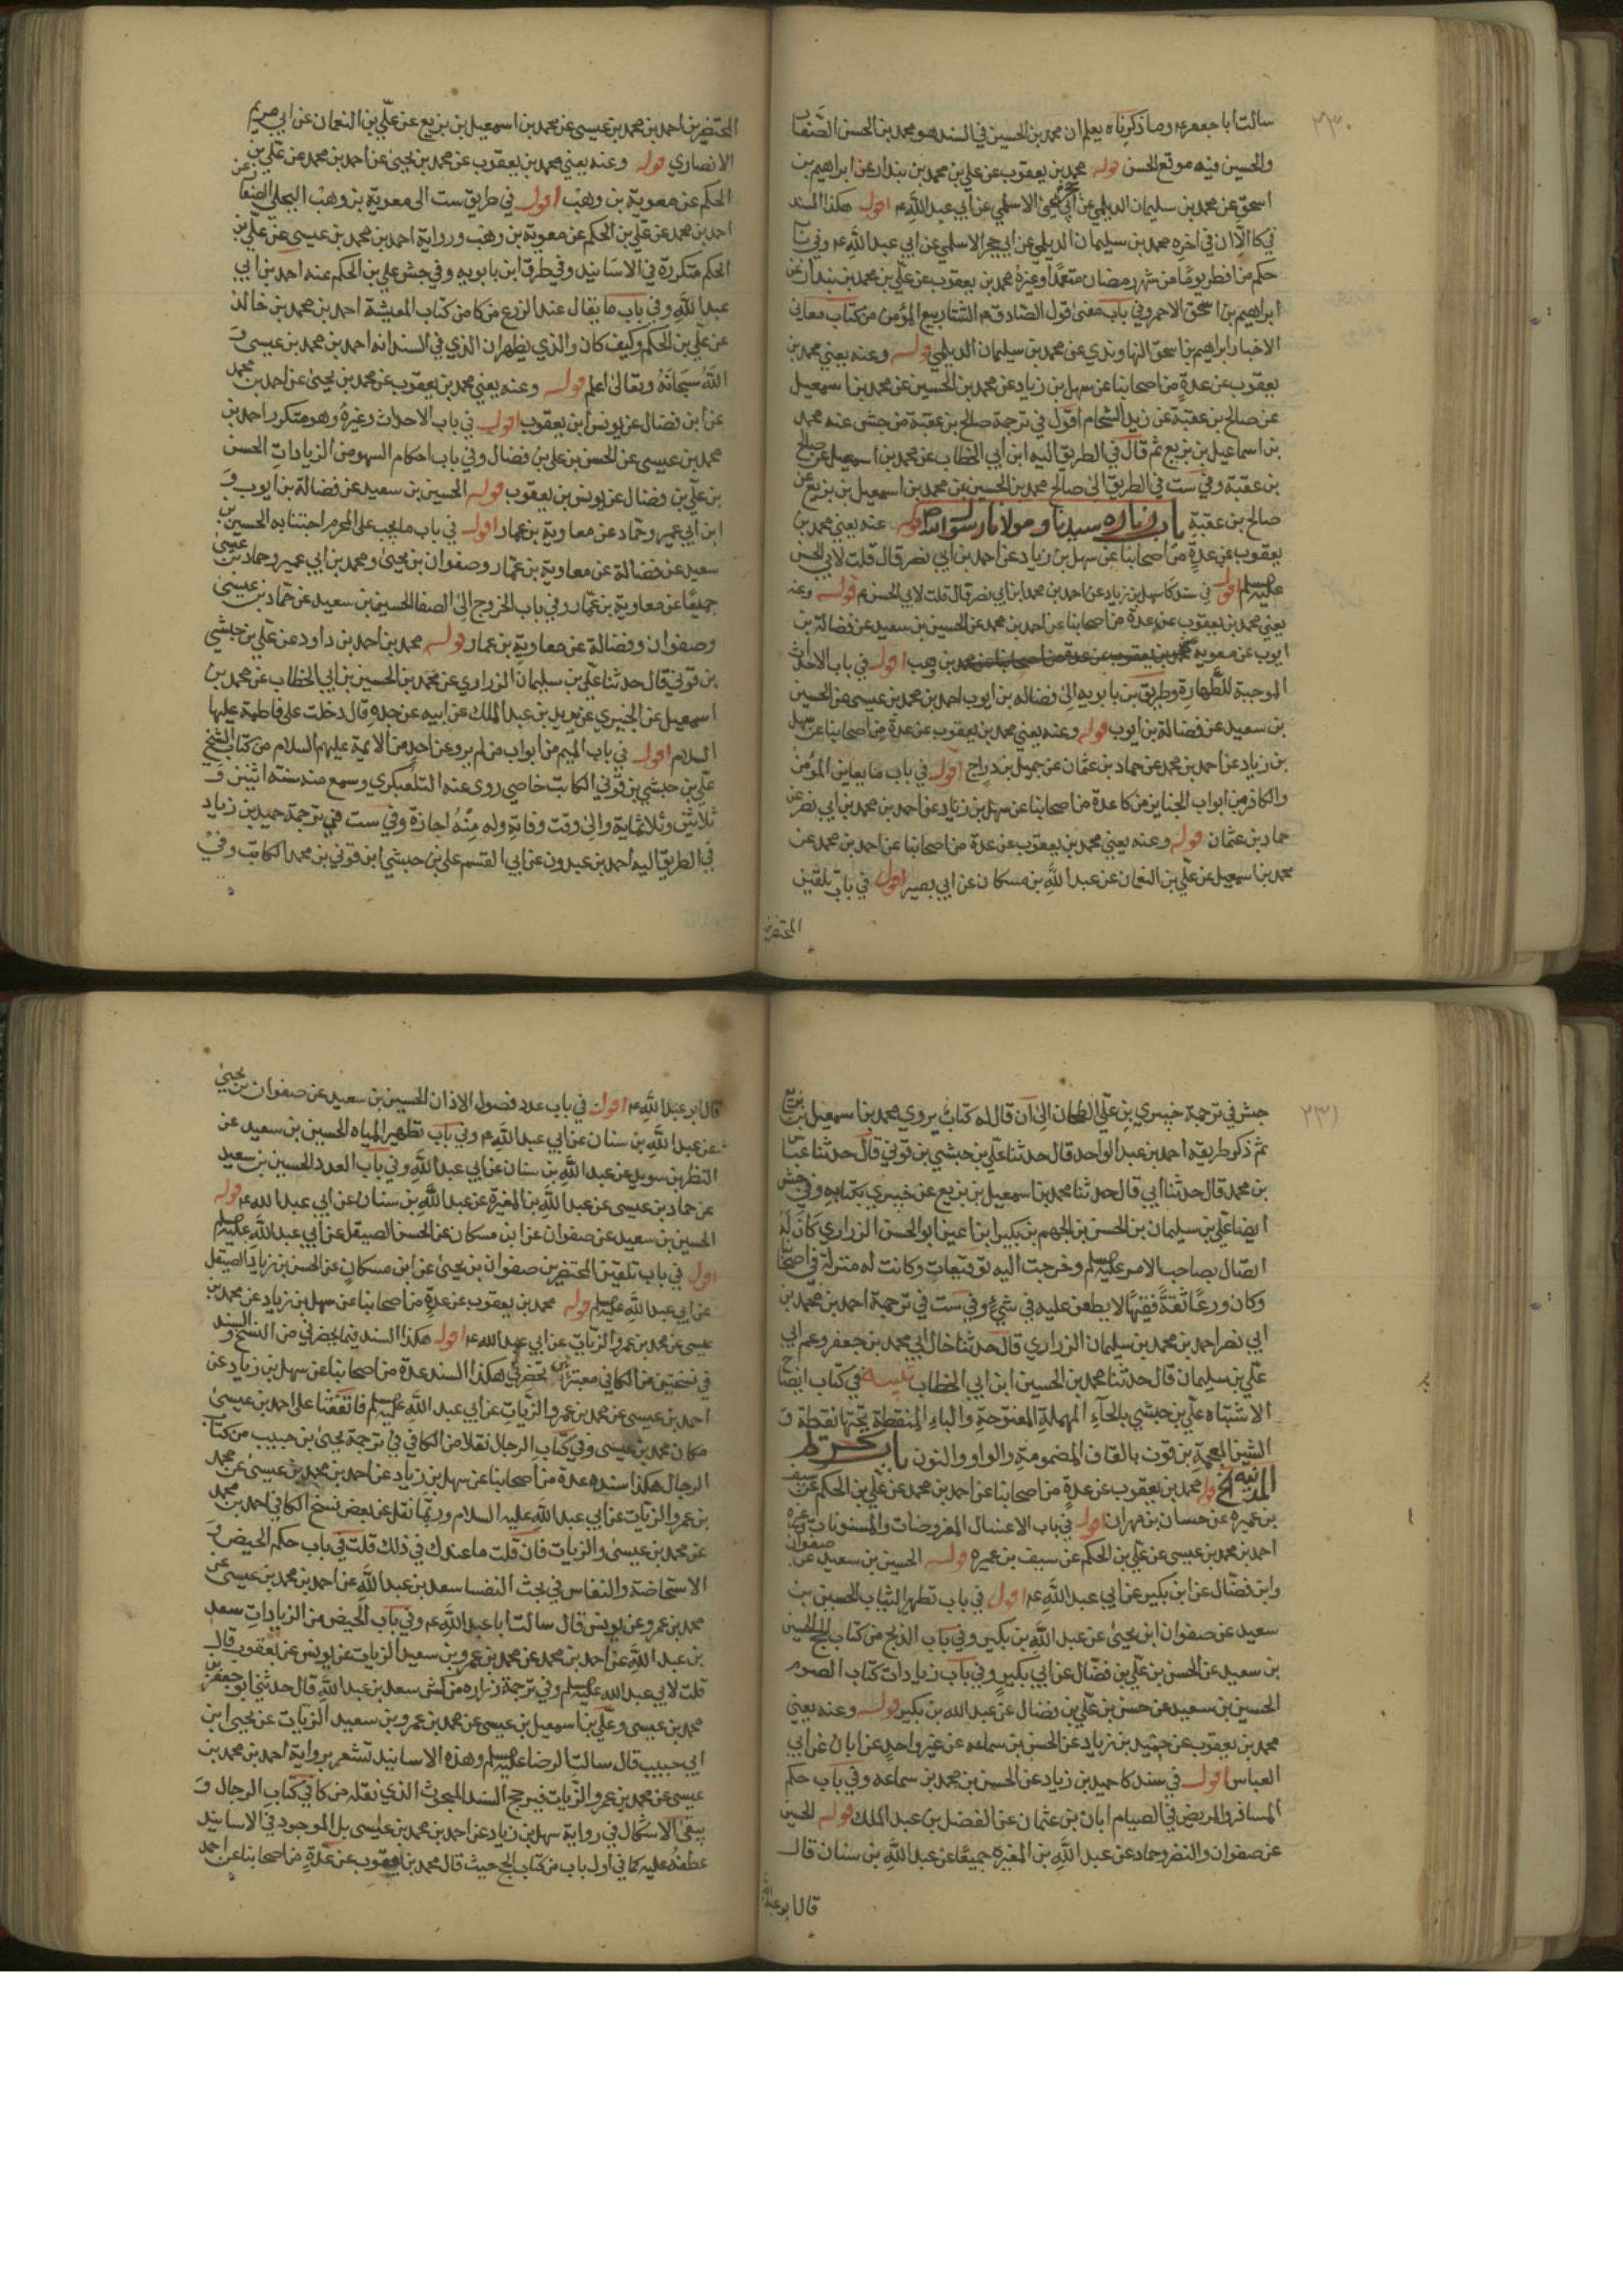 ٢٣٠
سالت ابا جعفر ع وما ذكرناه يعلم ان محمد بن الحسين في السند هو محمد بن الحسن الصفار
والحسين فيه موقع الحسن قوله محمد بن يعقوب عن علي بن محمد بن بندار عن ابراهيم بن
اسحق عن محمد بن سليمان الديلمي عن ابي يحيى الاسلمي عن ابي عبد الله ع اقول هكذا السند
في كا الا ان في اخره محمد بن سليمان الديلمي عن ابي حجر الاسلمي عن ابي عبد الله ع وفي باب
حكم من افطر يوما من شهر رمضان متعمدا وغيره محمد بن يعقوب عن علي بن محمد بن بندار عن
ابراهيم بن اسحق الاحمر وفي باب معنى قول الصادق ع الشتا ربيع المؤمن من كتاب معاني
الاخبار ابراهيم بن اسحق النهاوندي عن محمد بن سليمان الديلمي قوله وعنه يعني محمد بن
يعقوب عن عدة من اصحابنا عن سهل بن زياد عن محمد بن الحسين عن محمد بن اسمعيل
عن صالح بن عقبة عن زيد الشحام اقول في ترجمة صالح بن عقبة من جش عنه محمد
بن اسماعيل بن بزيع ثم قال في الطريق اليه ابن ابي الخطاب عن محمد بن اسمعيل عن صالح
بن عقبة وفي ست في الطريق الى صالح محمد بن الحسين عن محمد بن اسمعيل بن بزيع عن
صالح بن عقبة باب زياره سيدنا ومولانا رسول الله ص قوله عنه يعني محمد بن
يعقوب عن عدة من اصحابنا عن سهل بن زياد عن احمد بن ابي نصر قال قلت لابي الحسن
عليه السلم اقول في سند كا سهل بن زياد عن احمد بن محمد ابن ابي نصر قال قلت لابي الحسن ع قوله وعنه
يعني محمد بن يعقوب عن عدة من اصحابنا عن احمد بن محمد عن الحسين بن سعيد عن فضالة بن
ايوب عن معوية محمد بن يعقوب عن عدة من اصحابنا عن محمد بن وهب اقول في باب الاحداث
الموجبة للطهارة وطريق بن بابويه الى فضاله بن ايوب احمد بن محمد بن عيسى عن الحسين
بن سعيد عن فضالة بن ايوب قوله وعنه يعني محمد بن يعقوب عن عدة من اصحابنا عن سهل
بن زياد عن احمد بن محمد عن حماد بن عثمان عن جميل بن دراج اقول في باب ما يعاين المؤمن
والكافر من ابواب الجنايز من كا عدة من اصحابنا عن سهل بن زياد عن احمد بن محمد بن ابي نصر عن
حماد بن عثمان قوله وعنه يعني محمد بن يعقوب عن عدة من اصحابنا عن احمد بن محمد عن
محمد بن اسمعيل عن علي بن النعمان عن عبد الله بن مسكان عن ابي بصير اقول في باب تلقين
المحتضرين
المحتضرين احمد بن محمد بن عيسى عن محمد بن اسمعيل بن بزيع عن علي بن النعمان عن ابي مريم
الانصاري قوله وعنه يعني محمد بن يعقوب عن محمد بن يحيى عن احمد بن محمد عن علي بن
الحكم عن معوية بن وهب اقول في طريق ست الى معوية بن وهب البجلي الصفار عن
احمد بن محمد عن علي بن الحكم عن معوية بن وهب ورواية احمد بن محمد بن عيسى عن علي بن
الحكم متكررة في الاسانيد وفي طرق ابن بابويه وفي جش علي بن الحكم عنه احمد بن ابي
عبد الله وفي باب ما يقال عند الزرع من كا من كتاب المعيشة احمد بن محمد بن خالد
عن علي بن الحكم وكيف كان والذي يظهر ان الذي في السند انه احمد بن محمد بن عيسى و
الله سبحانه وتعالى اعلم قوله وعنه يعني محمد بن يعقوب عن محمد بن يحيى عن احمد بن محمد
عن ابن فضال عن يونس ابن يعقوب اقول في باب الاحداث وغيره وهو متكرر احمد بن
محمد بن عيسى عن الحسن بن علي بن فضال وفي باب احكام السهو من الزيادات الحسن
بن علي بن فضال عن يونس بن يعقوب قوله الحسين بن سعيد عن فضالة بن ايوب و
ابن ابي عمير وحماد عن معاوية بن عمار اقول في باب ما يجب على المحرم اجتنابه الحسين بن
سعيد عن فضالة عن معاوية بن عمار وصفوان بن يحيى ومحمد بن ابي عمير وحماد بن عيسى
جميعا عن معاوية بن عمار وفي باب الخروج الى الصفا الحسين بن سعيد عن حماد بن عيسى
وصفوان وفضالة عن معاوية بن عمار قوله محمد بن احمد بن داود عن علي بن حبشي
بن قوني قال حدثنا علي بن سليمان الزراري عن محمد بن الحسين بن ابي الخطاب عن محمد بن
اسمعيل عن الخيبري عن يزيد بن عبد الملك عن ابيه عن جده قال دخلت على فاطمة عليها
السلام اقول في باب الميم من ابواب من لم يرو عن احد من الائمة عليهم السلام من كتاب الشيخ
علي بن حبشي بن قوني الكاتب خاصي روى عنه التلعكبري وسمع منه سنة اثنتين و
ثلاثين وثلاثماية والى وقت وفاته وله منه اجازة وفي ست في ترجمة حميد بن زياد
في الطريق اليه احمد بن عبدون عن ابي القسم علي بن حبشي ابن قوني بن محمد الكاتب وفي
٢٣١
جش في ترجمة خيبري بن علي الطحان الى ان قال له كتاب يروي محمد بن اسمعيل بن بزيع
ثم ذكر طريقه احمد بن عبد الواحد قال حدثنا علي بن حبشي بن قوني قال حدثنا عباس
بن محمد قال حدثنا ابي قال حدثنا محمد بن اسمعيل بن بزيع عن خيبري بكتابه وفي جش
ايضا علي بن سليمان بن الحسن بن الجهم بن بكير ابن اعين ابو الحسن الزراري كان له
اتصال بصاحب الامر عليه السلم وخرجت اليه توقيعات وكانت له منزلة في اصحابنا
وكان ورعا ثقة فقيها لا يطعن عليه في شيء وفي ست في ترجمة احمد بن محمد بن
ابي نصر احمد بن محمد بن سليمان الزراري قال حدثنا خال ابي محمد بن جعفر وعم ابي
علي بن سليمان قال حدثنا محمد بن الحسين ابن ابي الخطاب تنبيه في كتاب ايضاح
الاشتباه علي بن حبشي بالحاء المهملة المفتوحة والباء المنقطة تحتها نقطة و
الشين المعجمة بن قوت بالقاف المضمومة والواو والنون باب تحريم
المدينة الخ قوله محمد بن يعقوب عن عدة من اصحابنا عن احمد بن محمد عن علي بن الحكم عن سيف
بن عميره عن حسان بن مهران اقول في باب الاغسال المفروضات والمسنونات وغيره
احمد بن محمد بن عيسى عن علي بن الحكم عن سيف بن عميره قوله الحسين بن سعيد عن صفوان
وابن فضال عن ابن بكير عن ابي عبد الله ع اقول في باب تطهير الثياب الحسين بن
سعيد عن صفوان ابن يحيى عن عبد الله بن بكير وفي باب الذبح من كتاب الحج الحسين
بن سعيد عن الحسن بن علي بن فضال عن ابي بكير وفي باب زيادات كتاب الصوم
الحسين بن سعيد عن حسن بن علي بن فضال عن عبد الله بن بكير قوله وعنه يعني
محمد بن يعقوب عن حميد بن زياد عن الحسن بن سماعه عن غير واحد عن ابان عن ابي
العباس اقول في سند كا حميد بن زياد عن الحسن بن محمد بن سماعه وفي باب حكم
المسافر والمريض في الصيام ابان بن عثمان عن الفضل بن عبد الملك قوله الحسين
عن صفوان والنضر وحماد عن عبد الله بن المغيرة جميعا عن عبد الله بن سنان قال
قال ابو عبد الله
قال ابو عبد الله ع اقول في باب عدد فصول الاذان الحسين بن سعيد عن صفوان بن يحيى
عن عبد الله بن سنان عن ابي عبد الله ع وفي باب تطهير المياه الحسين بن سعيد عن
النظر بن سويد عن عبد الله بن سنان عن ابي عبد الله وفي باب العدد الحسين بن سعيد
عن حماد بن عيسى عن عبد الله بن المغيرة عن عبد الله بن سنان عن ابي عبد الله ع قوله
الحسين بن سعيد عن صفوان عن ابن مسكان عن الحسن الصيقل عن ابي عبد الله عليه السلم
اقول في باب تلقين المحتضرين صفوان بن يحيى عن ابن مسكان عن الحسن بن زياد الصيقل
عن ابي عبد الله عليه السلم قوله محمد بن يعقوب عن عدة من اصحابنا عن سهل بن زياد عن محمد بن
عيسى عن محمد بن عمرو الزيات عن ابي عبد الله ع اقول هكذا السند فيما يحضرني من النسخ والسند
في نسختين من الكافي معتبرتين تحضرني هكذا السند عدة من اصحابنا عن سهل بن زياد عن
احمد بن عيسى عن محمد بن عمرو الزيات عن ابي عبد الله عليه السلم فاتفقتا على احمد بن عيسى
مكان محمد بن عيسى وفي كتاب الرجال نقلا من الكافي في ترجمة يحيى بن حبيب من كتاب
الرجال هكذا سنده عدة من اصحابنا عن سهل بن زياد عن احمد بن محمد بن عيسى عن محمد
بن عمرو الزيات عن ابي عبد الله عليه السلام وربما نقل عن بعض نسخ الكافي احمد بن محمد
عن محمد بن عيسى والزيات فان قلت ما عندك في ذلك قلت في باب حكم الحيض و
الاستحاضة والنفاس في بحث النفسا سعد بن عبد الله عن احمد بن محمد بن عيسى عن
محمد بن عمرو عن يونس قال سالت ابا عبد الله ع وفي باب الحيض من الزيادات سعد
بن عبد الله عن احمد بن محمد عن محمد بن عمرو بن سعيد الزيات عن يونس عن يعقوب قال
قلت لابي عبد الله عليه السلم وفي ترجمة زراره من كش سعد بن عبد الله قال حدثنا ابو جعفر بن
محمد بن عيسى وعلي بن اسمعيل بن عيسى عن محمد بن عمرو بن سعيد الزيات عن يحيى ابن
ابي حبيب قال سالت الرضا عليه السلم وهذه الاسانيد تشعر برواية احمد بن محمد بن
عيسى عن محمد بن عمرو الزيات فيرجح السند المبحوث الذي نقله من كا في كتاب الرجال و
يبقى الاشكال في رواية سهل بن زياد عن احمد بن محمد بن عيسى بل الموجود في الاسانيد
عطفه عليه كما في اول باب من كتاب الحج حيث قال محمد بن يعقوب عن عدة من اصحابنا عن احمد